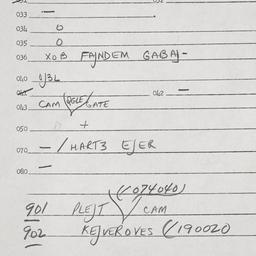 033 —
034 0
035 0
036 XOB FAJNDEM GABAJ-
040 0/3L
042 —
043 CAM GATE
050 +
070 — / HART3 EJER
080 —
(/074040)
901 PLEJT / CAM
902 KEJVEROVES (/190020